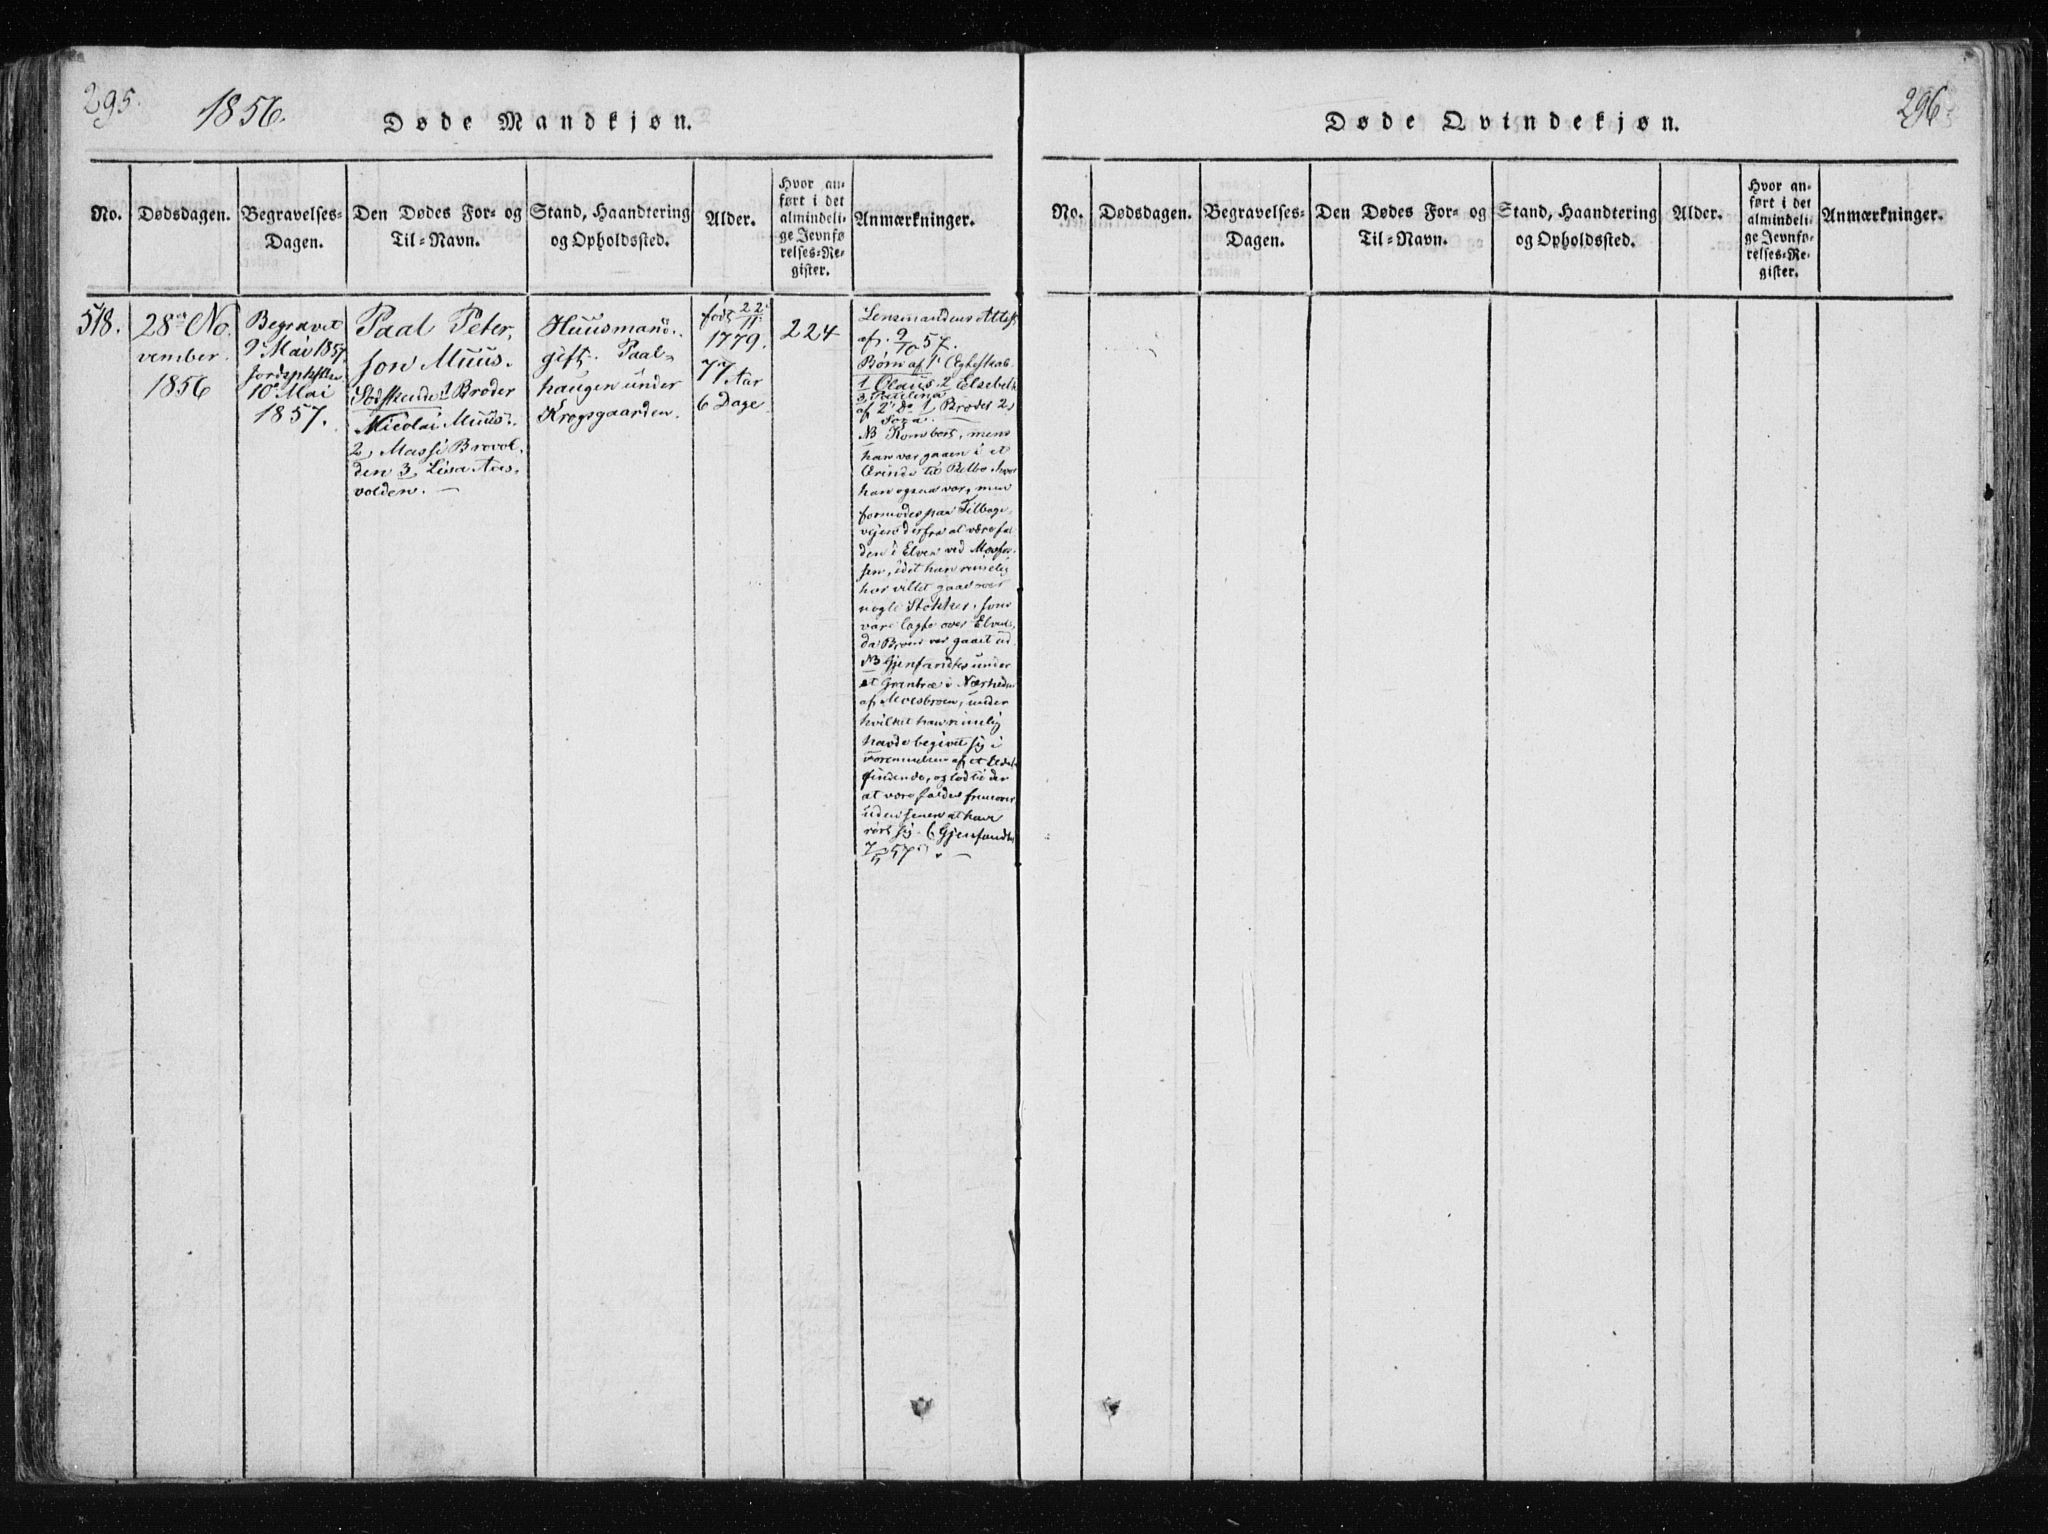 295.
1856.
Døde Mandkjøn.
No.
Dødsdagen.
Begravelses-
Dagen.
Den Dødes For- og
Til-Navn.
Stand, Haandtering
og Opholdssted.
Alder.
Hvor an-
ført i det
almindeli-
ge Jevnfø-
relses-Re-
gister.
Anmærkninger.
518.
28de No-
vember
1856
Begravet
9de Mai 1857.
10de Mai
1857.
Paal Peter-
son Muus.
Sødskende 1 Broder
Nicolai Muus.
2, Massi Brovol-
den 3, Lisa Aas-
volden. —
Huusmand.
gift. Paal-
haugen under
Krogsgaarden.
født 22/11
1779.
77 Aar
6 Dage.
224
Lensmandens Attest
af 9/10 57.
Børn af 1' Egteskab
1 Olaus, 2 Elsebeth
3,
af 2' Do 1, Broder 2,
NB mens
han var gaaen i et
Ærinde til Selbo hvor
han ogsaa var, men
formodes paa Tilbage-
veien derfra at være fal-
den i Elven ved Mosfor-
sen, idet han rimelig
har villet gaae over
nogle Stokker, som
vare lagte over Elven,
da Broen var gaaet ud.
NB Gjenfandtes under
et Grantræ i Nærheden
af Mosbroen, under
hvilket han rimelig
havde begivet sig i
af et Ilde-
findende, og lod til der
at være falden fremover
uden senere at have
rørt sig. (Gjenfandtes
7/5 57) . —
296.
Døde Qvindekjøn.
No.
Dødsdagen.
Begravelses-
Dagen.
Den Dødes For- og
Til-Navn.
Stand, Haandtering
og Opholdssted.
Alder.
Hvor an-
ført i det
almindeli-
ge Jevnfø-
relses-Re-
gister.
Anmærkninger.